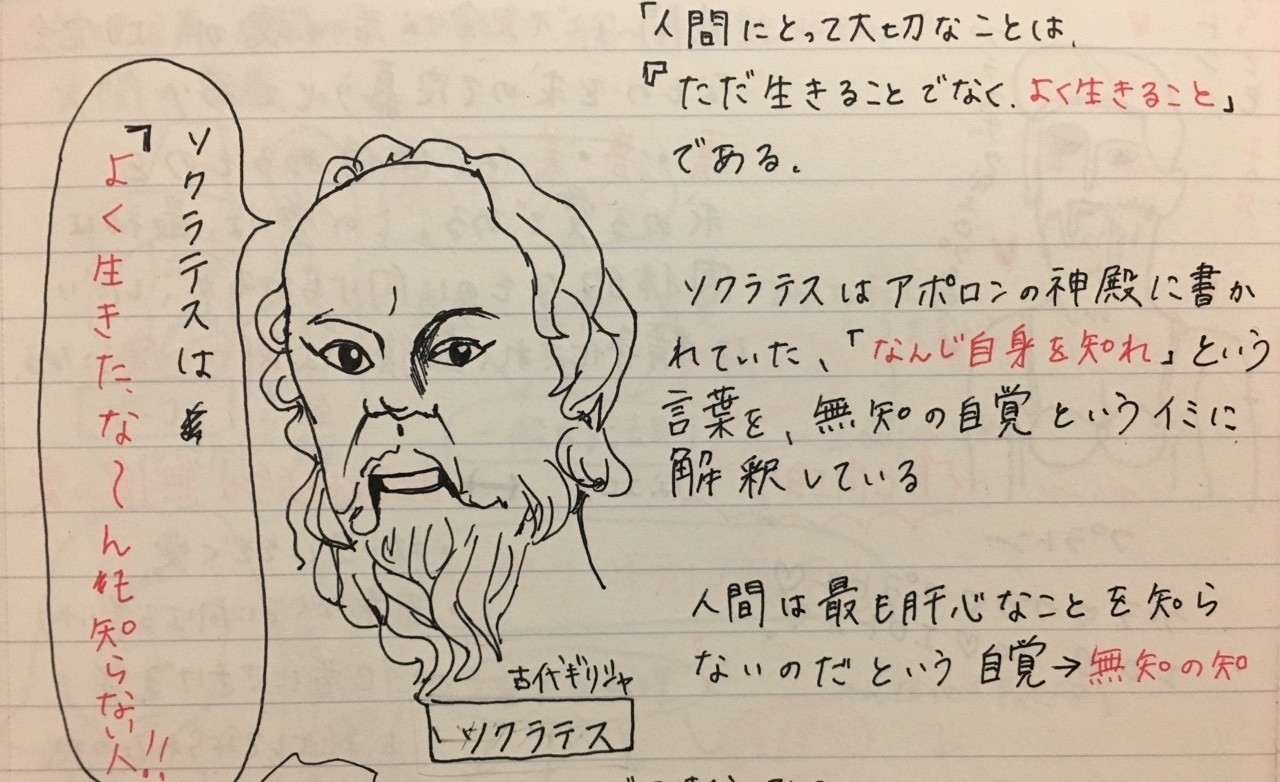 「人間にとって大切なことは、
『ただ生きることでなく、よく生きること」
である。
ソクラテスは
「よく生きた、な～んも知らない人!!
ソクラテスはアポロンの神殿に書か
れていた、「なんじ自身を知れ」という
言葉を、無知の自覚というイミに
解釈している
人間は最も肝心なことを知ら
ないのだという自覚→無知の知
古代ギリシャ
ソクラテス